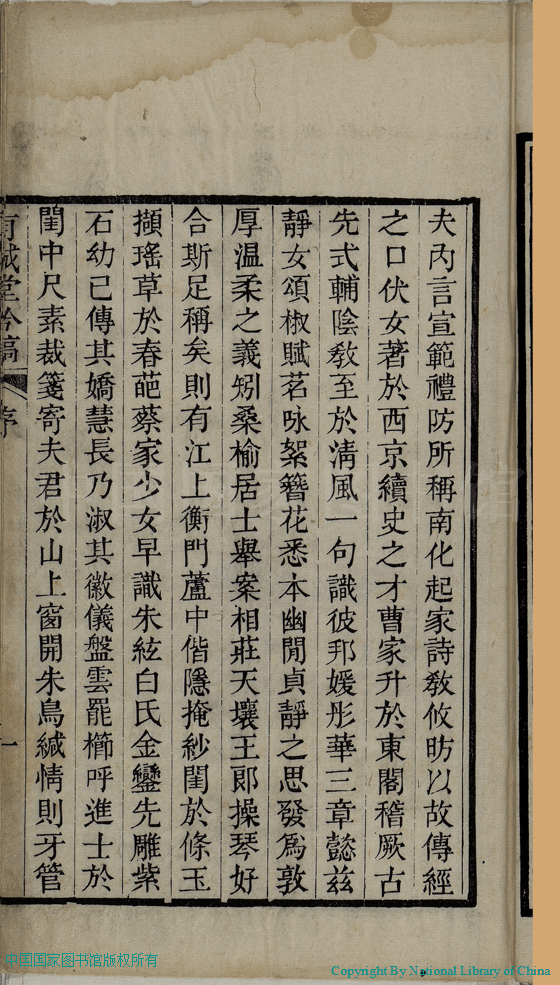 夫內言宣範禮防所稱南化起家詩敎攸昉以故傳經
之口伏女著於西京續史之才曹家升於東閣稽厥古
先式輔陰敎至於清風一句識彼邦媛彤華三章懿茲
靜女頌椒賦茗咏絮簪花悉本幽閒貞靜之思發爲敦
厚温柔之義矧桑榆居士舉案相莊天壤王郞操琴好
合斯足稱矣則有江上衡門蘆中偕隱掩紗閨於條玉
擷瑤草於春葩蔡家少女早識朱絃白氏金鑾先雕紫
石幼已傳其嬌慧長乃淑其徽儀盤雲罷櫛呼進士於
閨中尺素裁箋寄夫君於山上窗開朱鳥緘情則牙管
堂吟稿 序 一
中国国家图书馆版权所有
Copyright By National Library of China